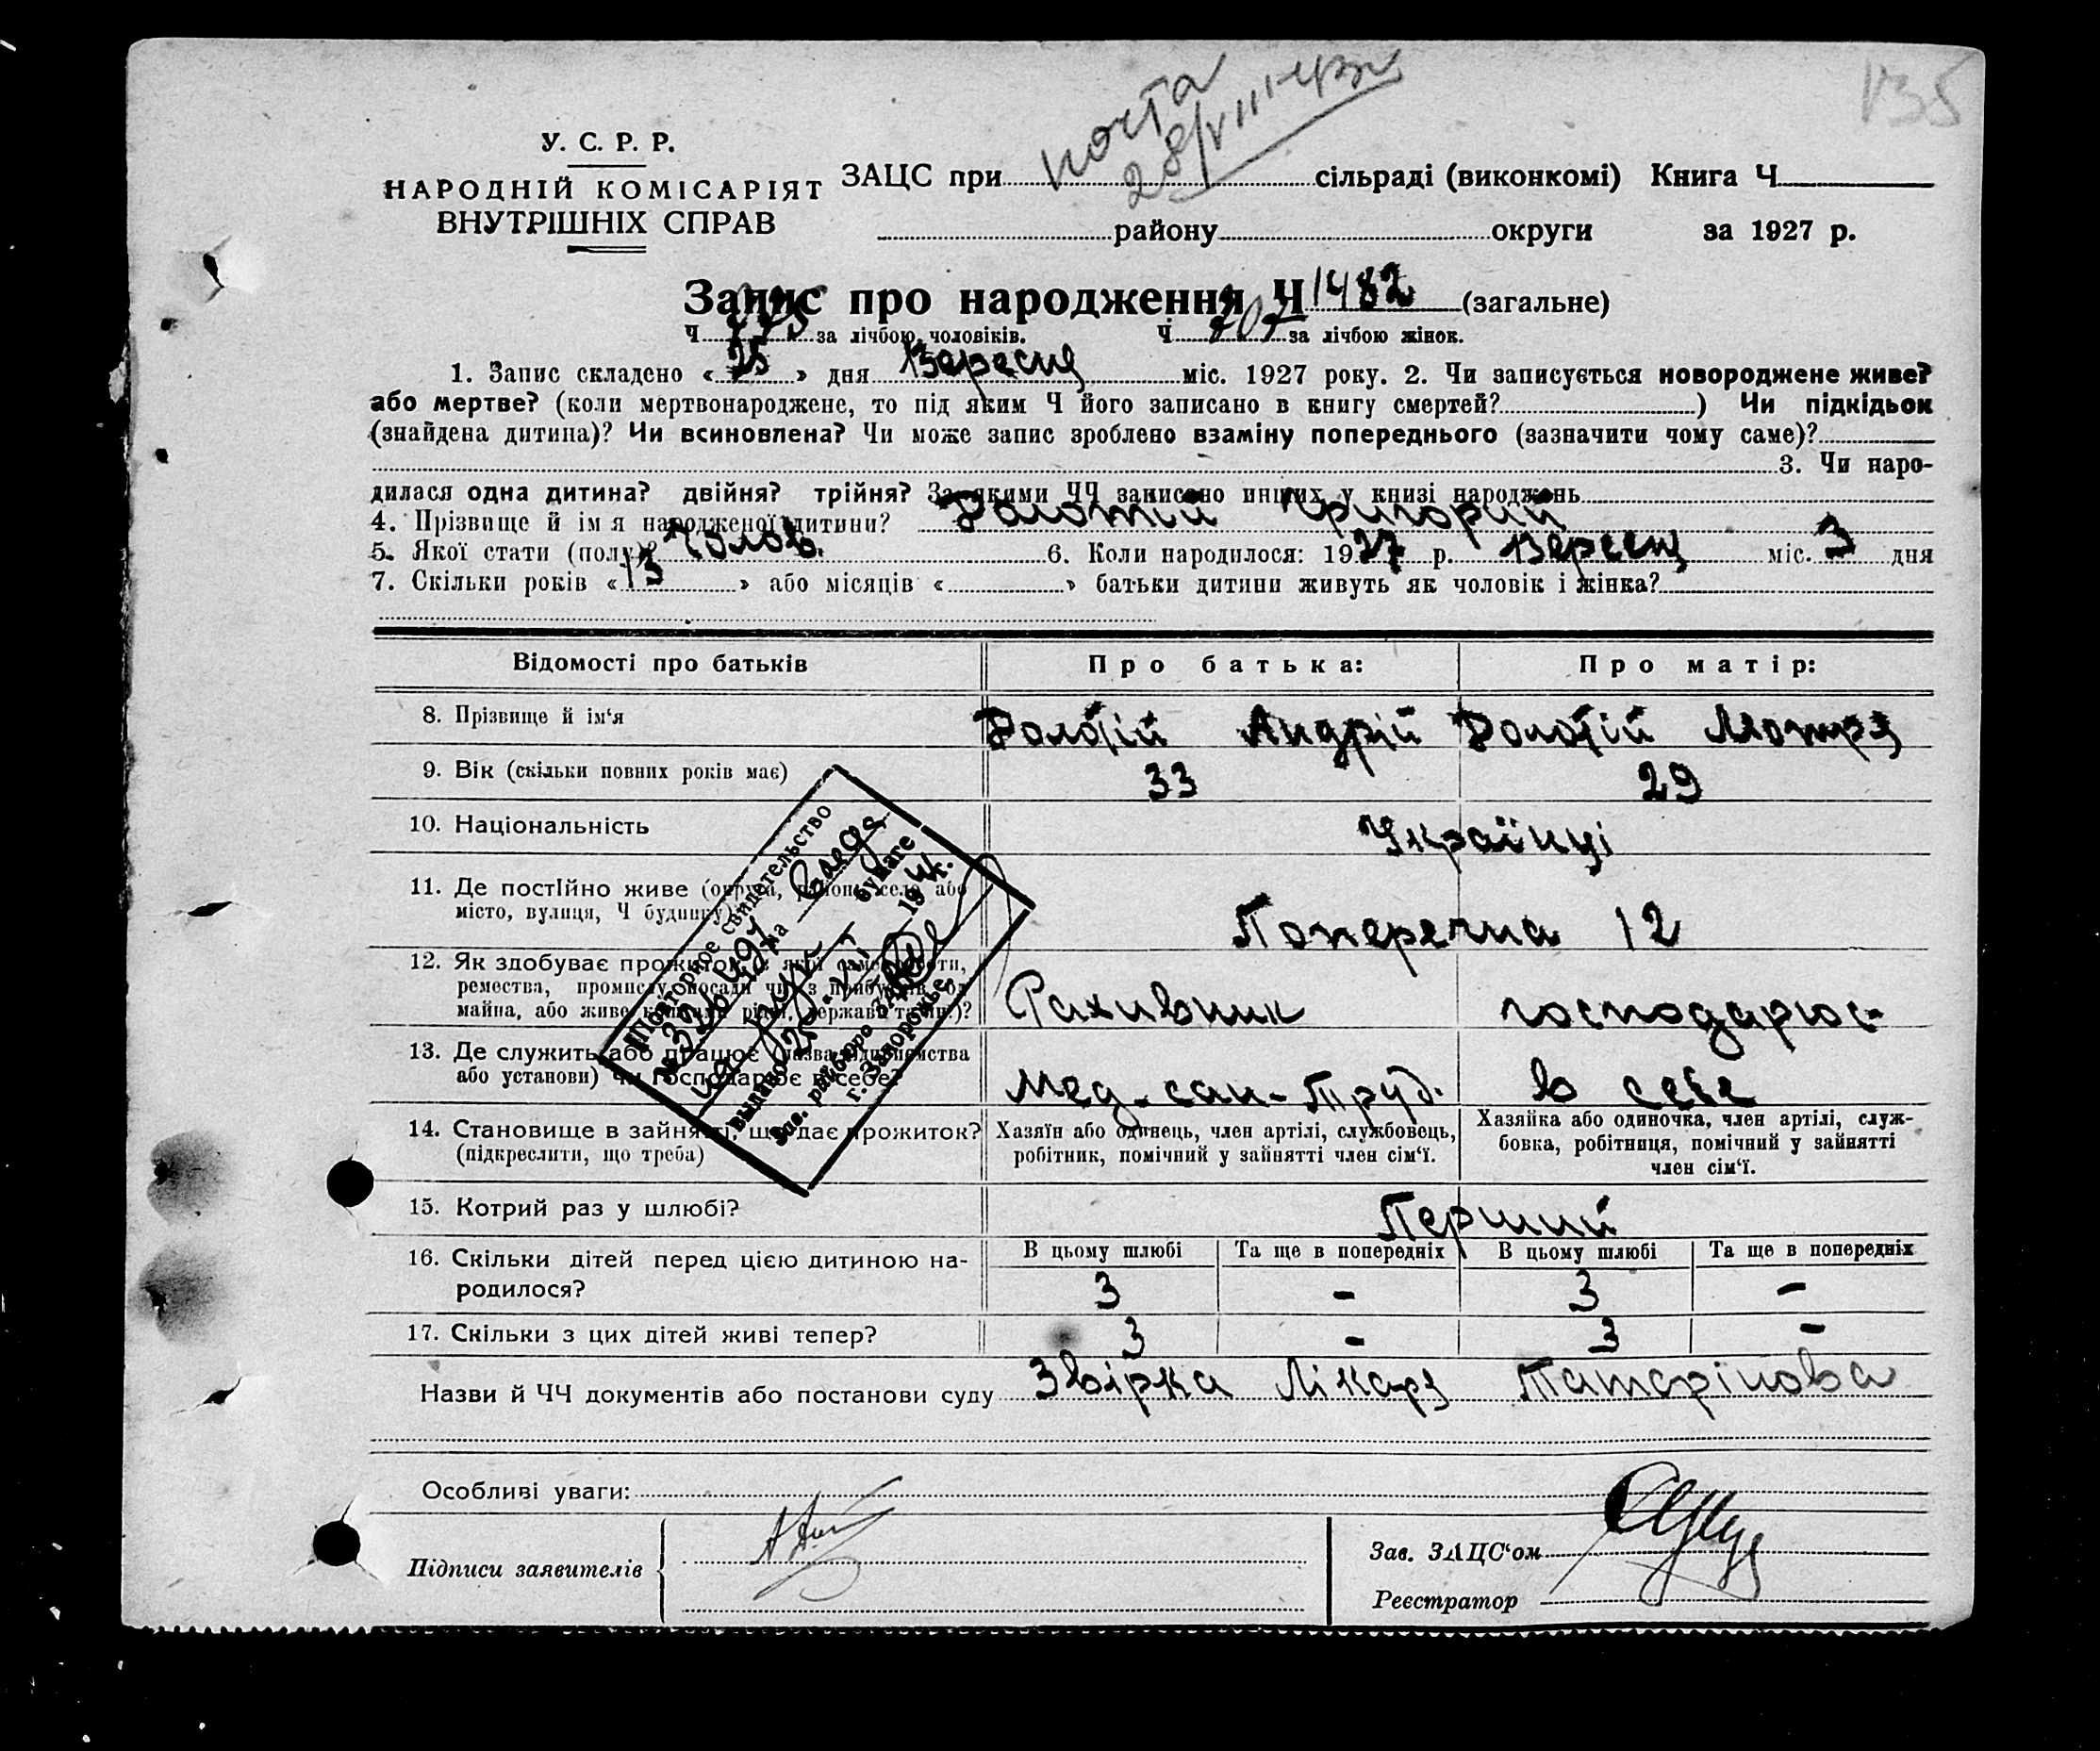 135
почта
28/VIII-43г
У. С. Р. Р.
НАРОДНІЙ КОМІСАРІЯТ
ВНУТРІШНІХ СПРАВ
ЗАЦС при сільраді (виконкомі) Книга Ч.
району округи за 1927 р.
Запис про народження Ч 1482 (загальне)
Ч. 775 за лічбою чоловіків. Ч. 707 за лічбою жінок.
1. Запис складено «25» дня Вересня міс. 1927 року. 2. Чи записується новороджене живе?
або мертве? (коли мертвонароджене, то під яким Ч його записано в книгу смертей? ) Чи підкідьок
(знайдена дитина)? Чи всиновлена? Чи може запис зроблено взаміну попереднього (зазначити чому саме)?
3. Чи наро-
дилася одна дитина? двійня? трійня? За якими ЧЧ записано инших у книзі народжень
4. Прізвище й ім я народженої дитини? Золотій Григорій
5. Якої стати (полу)? Чолов. 6. Коли народилося: 1927 р. Вересня міс. 3 дня
7. Скільки років «13» або місяців « » батьки дитини живуть як чоловік і жінка?
Відомості про батьків Про батька: Про матір:
8. Прізвище й ім‘я Золотій Андрій Золотій Мотря
9. Вік (скільки повних років має) 33 29
10. Національність Українці
11. Де постійно живе (округа, район, село або
місто, вулиця, Ч будинку) Поперечна 12
12. Як здобуває прожиток: з якої саме роботи,
ремества, промислу, посади чи з прибутків од
майна, або живе коштами рідні, держави та ин.)? Рахивник господарює
13. Де служить або працює (назва підприємства
або установи) чи господарює в себе? мед-сан-Труд. в себе
14. Становище в зайнятті, що дає прожиток?
(підкреслити, що треба)
Хазяїн або одинець, член артілі, службовець,
робітник, помічний у зайнятті член сім‘ї.
Хазяйка або одиночка, член артілі, служ-
бовка, робітниця, помічний у зайнятті
член сім‘ї.
15. Котрий раз у шлюбі? Перший
16. Скільки дітей перед цією дитиною на-
родилося?
В цьому шлюбі Та ще в попередніх В цьому шлюбі Та ще в попередніх
3 - 3 -
17. Скільки з цих дітей живі тепер? 3 - 3 -
Назви й ЧЧ документів або постанови суду Звірка Лікаря Татарінова
Особливі уваги:
Підписи заявителів
Зав. ЗАЦС‘ом
Реєстратор
Повторное свидетельство
№ на
бумаге
выдано 19 г.
Зав. райбюро ЗАГС
г. Запорожье